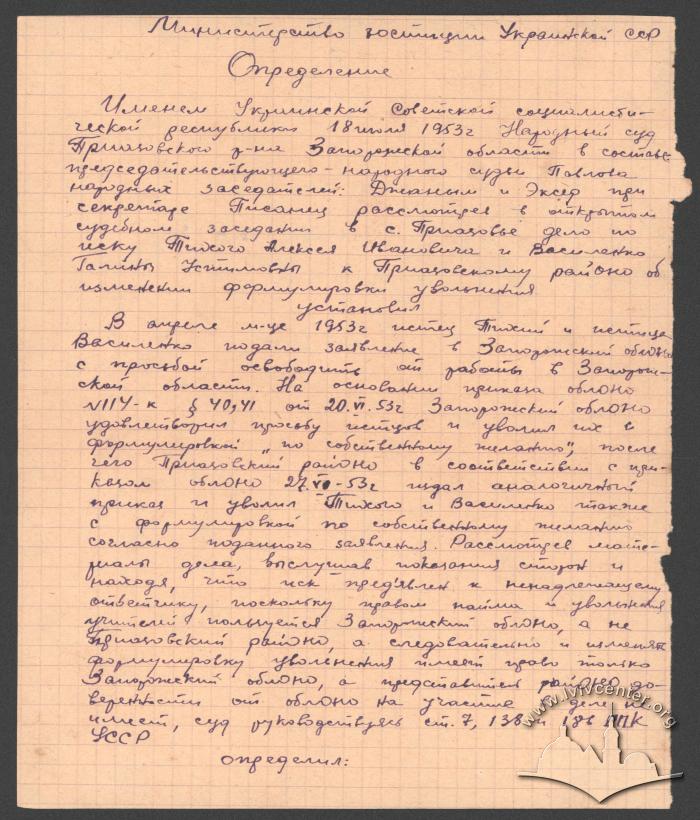 Министерство юстиции Украинской ССР
Определение
Именем Украинской Советской социалисти-
ческой республики 18 июля 1953г Народный суд
Приазовского р-на Запорожской области в составе
председательствующего - народного судьи Павлова
народных заседателей: Джаным и Эксер при
секретаре Писанец рассмотрев в открытом
судебном заседании в с. Приазовье дело по
иску Тихого Алексея Ивановича и Василенко
Галины Устимовны к Приазовскому райОНО об
изменении формулировки увольнения
установил
В апреле м-це 1953г истец Тихий и истица
Василенко подали заявление в Запорожский облОНО
с просьбой освободить от работы в Запорож-
ской области. На основании приказа облОНО
№114-к § 40,41 от 20.VI.53г Запорожский облОНО
удовлетворил просьбу истцов и уволил их с
формулировкой „по собственному желанию", после
чего Приазовский райОНО в соответствии с при-
казом облОНО 27.VI-53г издал аналогичный
приказ и уволил Тихого и Василенко также
с формулировкой по собственному желанию
согласно поданного заявления. Рассмотрев мате-
риалы дела, выслушав показания сторон и
находя, что иск предъявлен к ненадлежащему
ответчику, поскольку правом найма и увольнения
учителей пользуется Запорожский облОНО, а не
Приазовский райОНО, а следовательно и изменять
формулировку увольнения имеет право только
Запорожский облОНО, а представитель райОНО до-
веренности от облОНО на участие в деле не
имеет, суд руководствуясь ст. 7, 138 и 186 ГПК
УССР
определил:
www.lvivcenter.org